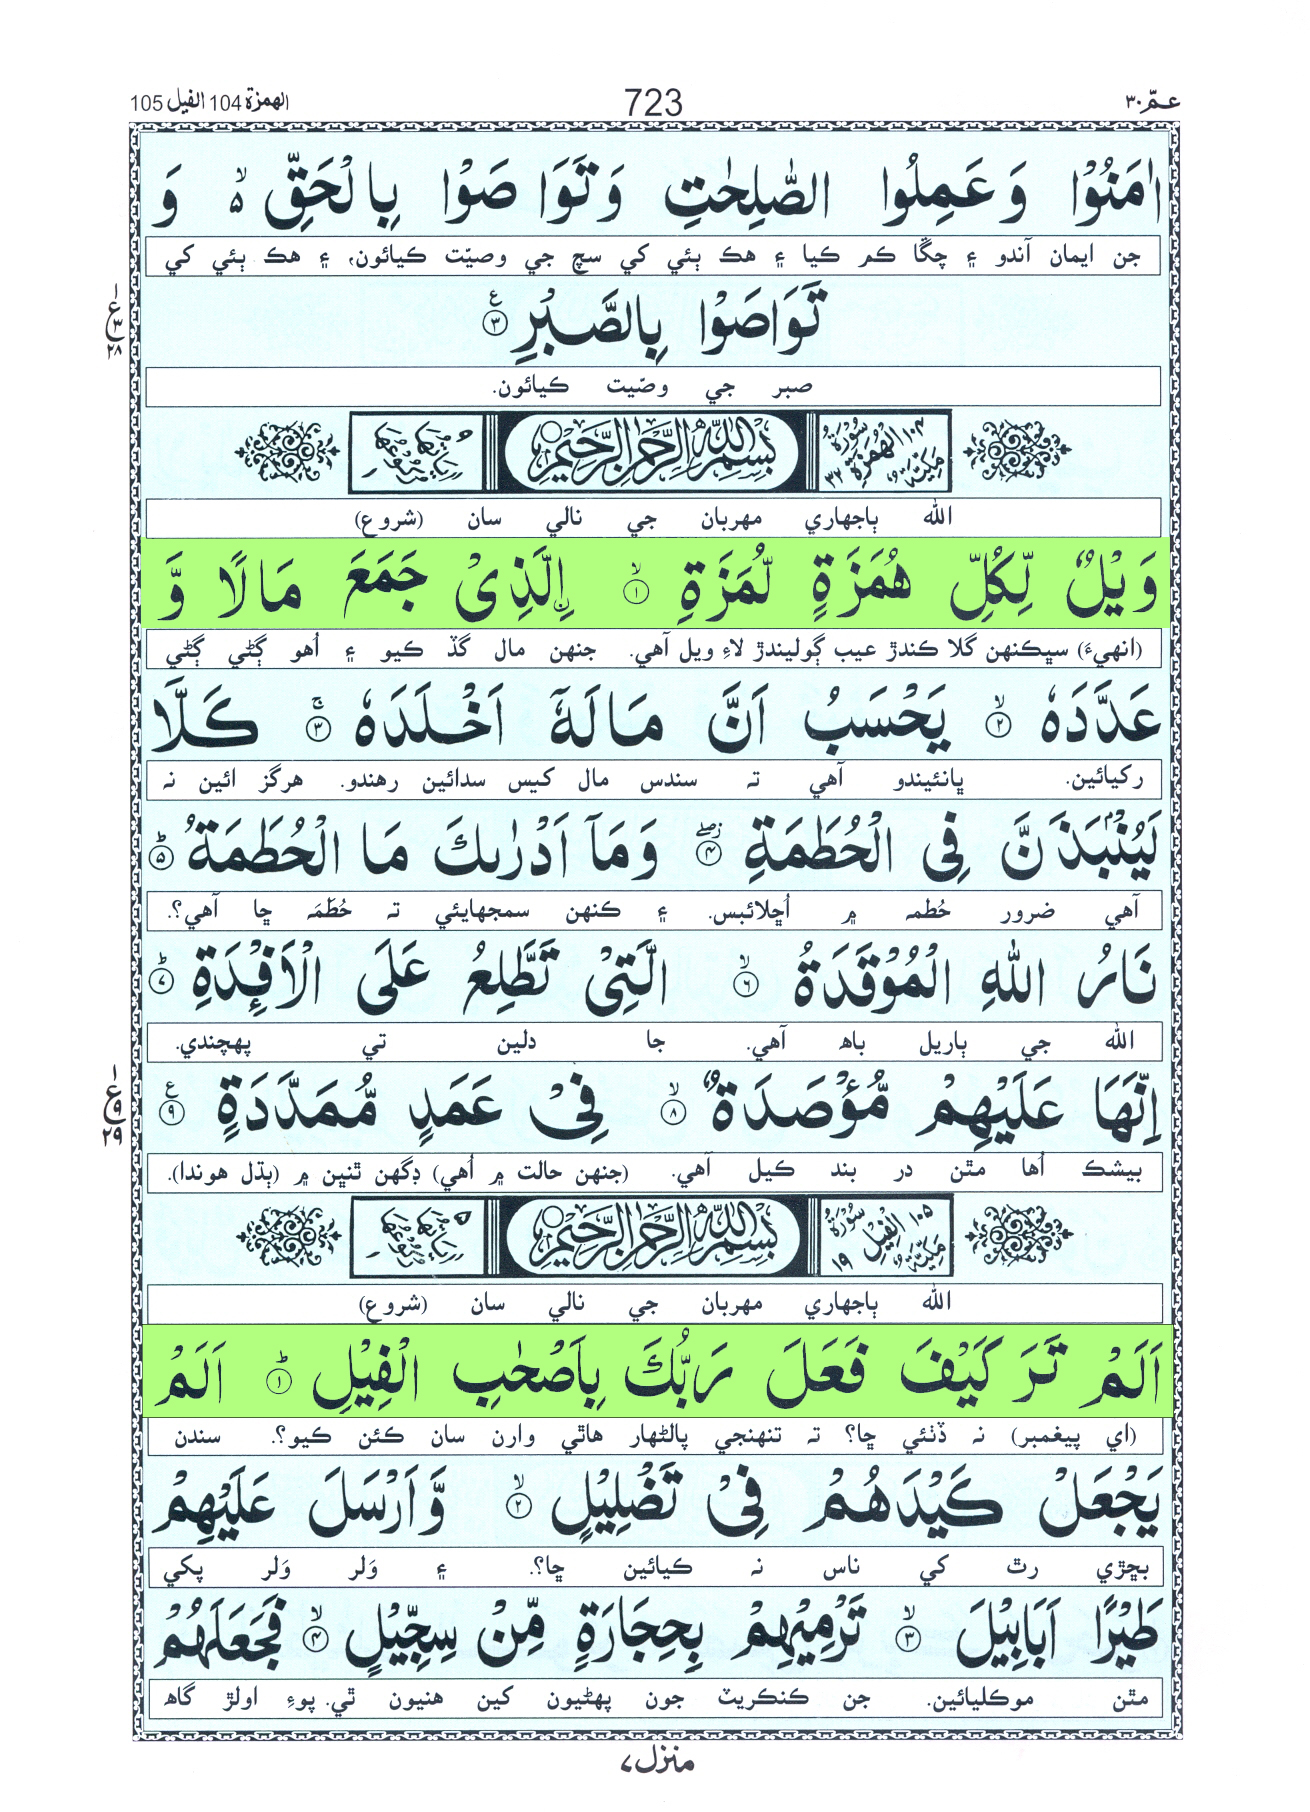 عمّ ٣٠
723
الهمزة 104 الفيل 105
اٰمَنُوْا وَعَمِلُوا الصّٰلِحٰتِ وَتَوَاصَوْا بِالْحَقِّ ۙ۬ وَ
جن ايمان آندو ۽ چڱا ڪم ڪيا ۽ هڪ ٻئي کي سچ جي وصيّت ڪيائون، ۽ هڪ ٻئي کي
تَوَاصَوْا بِالصَّبْرِ ۧ ٣
١ ع ٣ ٢٨
صبر جي وصّيت ڪيائون.
١٠٤ سُوْرَةُ الْهُمَزَةِ مَكِّيَّةٌ ٣٢
بِسْمِ اللّٰهِ الرَّحْمٰنِ الرَّحِيْمِ
اٰيَاتُهَا ٩ رُكُوْعُهَا ١
الله ٻاجهاري مهربان جي نالي سان (شروع)
وَيْلٌ لِّكُلِّ هُمَزَةٍ لُّمَزَةِ ۙ ١ اِۨلَّذِىْ جَمَعَ مَالًا وَّ
(انهيءَ) سڀڪنهن گلا ڪندڙ عيب ڳوليندڙ لاءِ ويل آهي. جنهن مال گڏ ڪيو ۽ اُهو ڳڻي ڳڻي
عَدَّدَهٗ ۙ ٢ يَحْسَبُ اَنَّ مَالَهٗۤ اَخْلَدَهٗ ۚ ٣ كَلَّا
رکيائين. ڀانئيندو آهي ته سندس مال کيس سدائين رهندو. هرگز ائين نه
لَيُنْۢبَذَنَّ فِى الْحُطَمَةِ ٤ وَمَاۤ اَدْرٰىكَ مَا الْحُطَمَةُ ؕ ٥
آهي ضرور حُطمه ۾ اُڇلائبس. ۽ ڪنهن سمجهايئي ته حُطَمَہ ڇا آهي؟.
نَارُ اللّٰهِ الْمُوْقَدَةُ ۙ ٦ الَّتِىْ تَطَّلِعُ عَلَى الْاَفْـِٕدَةِ ؕ ٧
الله جي ٻاريل باھ آهي. جا دلين تي پهچندي.
اِنَّهَا عَلَيْهِمْ مُّؤْصَدَةٌ ۙ ٨ فِىْ عَمَدٍ مُّمَدَّدَةٍ ۧ ٩
١ ع ٩ ٢٩
بيشڪ اُها مٿن در بند ڪيل آهي. (جنهن حالت ۾ اُهي) ڊگهن ٿنڀن ۾ (ٻڌل هوندا).
١٠٥ سُوْرَةُ الْفِيْلِ مَكِّيَّةٌ ١٩
بِسْمِ اللّٰهِ الرَّحْمٰنِ الرَّحِيْمِ
اٰيَاتُهَا ٥ رُكُوْعُهَا ١
الله ٻاجهاري مهربان جي نالي سان (شروع)
اَلَمْ تَرَ كَيْفَ فَعَلَ رَبُّكَ بِاَصْحٰبِ الْفِيْلِ ؕ ١ اَلَمْ
(اي پيغمبر) نه ڏٺئي ڇا؟ ته تنهنجي پالڻهار هاٿي وارن سان ڪئن ڪيو؟. سندن
يَجْعَلْ كَيْدَهُمْ فِىْ تَضْلِيْلٍ ۙ ٢ وَّاَرْسَلَ عَلَيْهِمْ
بڇڙي رٿ کي ناس نه ڪيائين ڇا؟. ۽ وَلر وَلر پکي
طَيْرًا اَبَابِيْلَ ۙ ٣ تَرْمِيْهِمْ بِحِجَارَةٍ مِّنْ سِجِّيْلٍ ۙ ٤ فَجَعَلَهُمْ
مٿن موڪليائين. جن ڪنڪريٽ جون پهڻيون کين هنيون ٿي. پوءِ اولڙ گاھ
منزل ٧